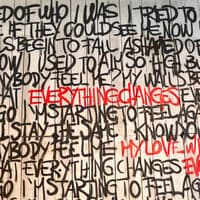 ED OF WHO I WAS I TRIED TO
IF THEY COULD SEE ME NOW
LS BEGIN TO FALL ASHAMED OF
NOW USED TO ALL SO HIGH BA
YBODY FEEL ME MY WALLS BE
EVERYTHING CHANGES EVE
GO I'M STARTING TO FEEL AG
STAY THE SAME I KNOW
ANYBODY FEEL ME MY LOVE W
AT EVERYTHING CHANGES EVE
GO I'M STARTING TO FEEL AGA